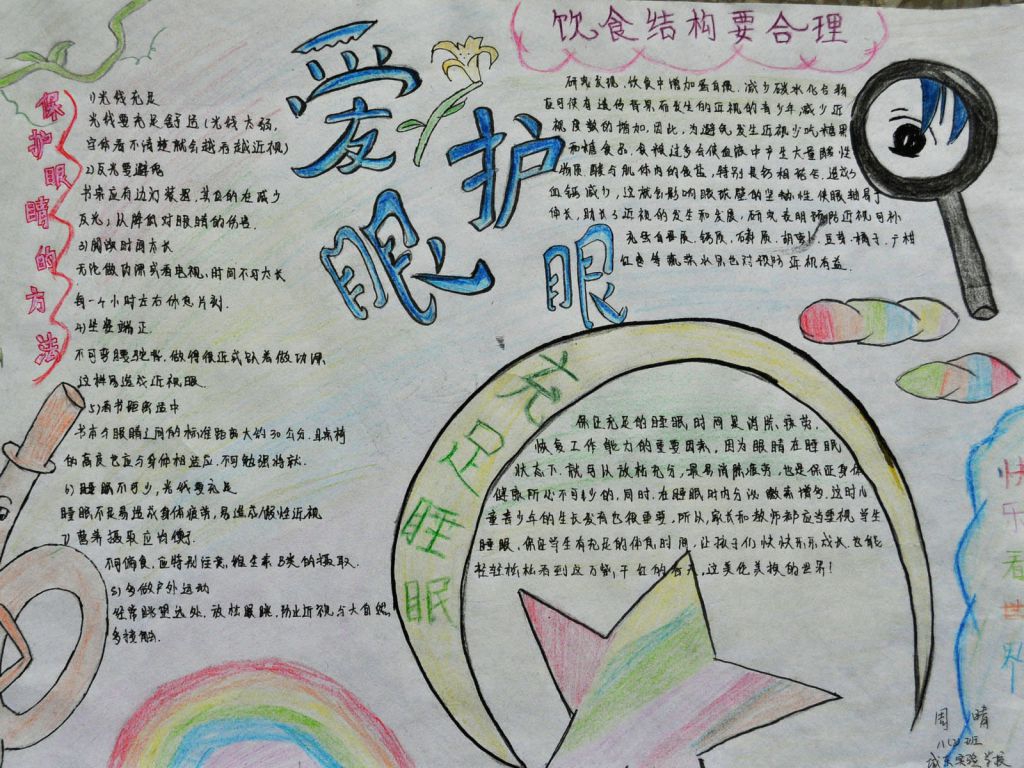 爱护眼眼
饮食结构要合理
保护眼睛的方法
1)光线充足
光线要充足舒适(光线太弱,
字体看不清楚就会越看越近视)
2)反光要避免
书桌应有边灯装置,其目的在减少
反光,从降低对眼睛的伤害.
3)阅读时间太长
无论做功课或看电视,时间不可太长
每一个小时左右休息片刻.
4)坐姿端正.
不可弯腰驼背,
这样易造成近视眼.
5)看书距离适中
书本与眼睛之间的标准距离大约30公分.且桌椅
的高度也应与身体相适应.不可勉强将就.
6)睡眠不可少,光线要充足
睡眠不足易造成身体疲劳,易造成假性近视
7)营养摄取应均衡.
不偏食,应特别注意,维生素B类的摄取.
8)多做户外运动
经常眺望远处,放松眼睛,防止近视与大自然,
多接触.
研究发现,饮食中增加蛋白质,减少碳水化合物
可使有遗传背景而发生的近视的青少年,减少近
视度数的增加,因此,为避免发生近视少吃糖果
和糖食品,食糖过多会使血液中产生大量酸性
物质,酸与肌体内的食盐,特别是钙相结合,造成
血钙减少,这就会影响眼球壁的坚韧性,使眼轴易于
伸长,助长了近视的发生和发展,研究表明预防近视可补
充蛋白质,钙质,磷质,胡萝卜.豆芽.橘子.广柑
红枣等蔬菜水果也对预防近视有益.
充足睡眠
保证充足的睡眠时间是消除疲劳,
恢复工作能力的重要因素,因为眼睛在睡眠
状态下就可以放松充分,最易消除疲劳,也是保证身体
健康所必不可少的,同时,在睡眠时内分泌激素增多,这对儿
童青少年的生长发育也很重要,所以,家长和教师都应当重视学生
睡眠,保证学生有充足的休息时间,让孩子们快快乐乐成长.也能
轻轻松松看到这万紫千红的春天,这美伦美换的世界!
快乐看世界
周晴
八(2)班
城东实验学校